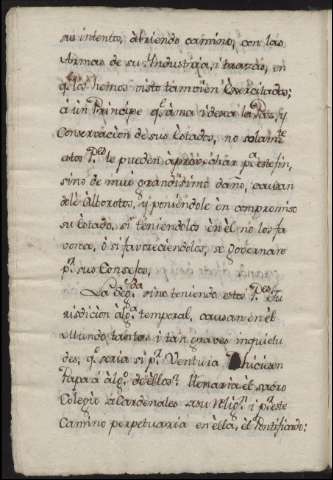 su intento, abriendo camino, con las
Armas de su Industria, i trazas, en
q.e los hemos visto tambien Exercitados;
á un Principe q.e ama i desea la Paz, y
Conservacion de sus Estados, no solam.te
estos P.es le pueden aprovechar p.a este fin,
sino de muy grandissimo daño, causan
dole alborotos, y poniendole en compromiso
su Estado, si teniendolos en èl no los fa
vorece, ò si favoreciendolos, se governare
p.r sus Consejos,
La seg.da si no teniendo estos P.es Ju
risdicion àlg.a temporal, causan en èl
Mundo tantas i tan graves inquietu
des, q.e seria si p.r Ventura hiciesen
Papa á àlg.o de èllos? llenaria èl sacro
Colegio de Cardenales de su Relig.n i p.r este
Camino perpetuaria en èlla, èl Pontificado;